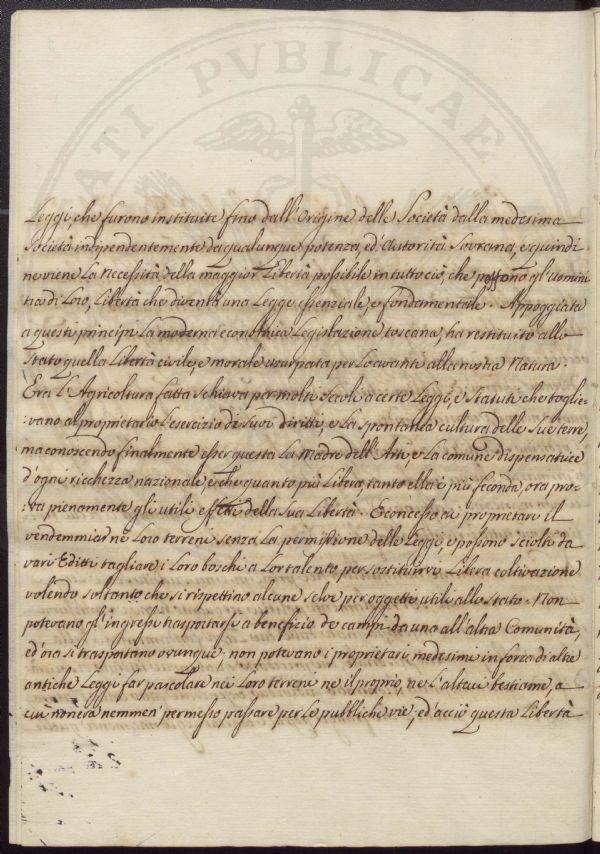 ATI PVBLICAE
Leggi, che furono instituite fino dall'Origine delle Società dalla medesima
Società indipendentemente da qualunque potenza, ed'Autorità Sovrana, e quindi
ne viene La necessità della maggior Libertà possibile in tutto ciò, che possono gl'uomini
di Loro, Libertà che diventa una Legge essenziale, e fondamentale. Appoggiata
a questi principi La moderna economica Legislazione toscana, ha restituito allo
Stato quella Libertà civile, e morale usurpata per Loavante alla nostra Natura.
Era L'Agricoltura fatta schiava per molti Secoli a certe Leggi, e Statuti che toglie-
:vano al proprietario L'esercizio di suoi diritti, e La spontanea cultura delle sue terre,
ma conoscendo finalmente esser questa La Madre dell'Arti, e La comune dispensatrice
d'ogni ricchezza nazionale, e che quanto più Libera, tanto ella è più feconda, ora pro-
:va pienamente gli utili effetti della sua Libertà. E concesso ai proprietari il
vendemmiar ne Loro terreni senza La permissione delle Leggi, e possono sciolti da
vari Editti tagliare i Loro boschi a Lor talento per sostituirvi Libera coltivazione
volendo soltanto che si rispettino alcune selve per oggetti utili allo stato. Non
potevano gl'ingrassi trasportarsi a benefizio de campi da una all'altra Comunità,
ed'ora si trasportano ovunque: non potevano i proprietari medesimi in forza di altre
antiche Leggi far pascolare nei Loro terreni ne il proprio, ne L'altrui bestiame, a
cui non era nemmen' permesso passare per Le pubbliche vie; ed'acciò questa Libertà